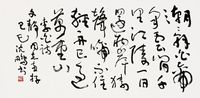 朝辞白帝
彩云间千里
江陵一日还
两岸猿声
啼不住
轻舟已过
万重山
李白诗
同志
沈鹏